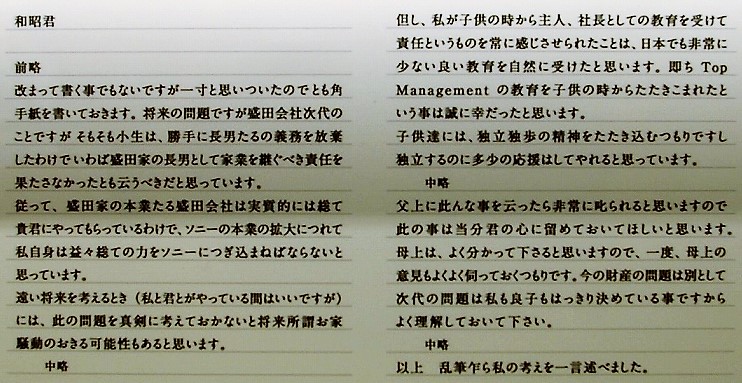 和昭君
前略
改まって書く事でもないですが一寸と思いついたのでとも角
手紙を書いておきます。将来の問題ですが盛田会社次代の
ことですが そもそも小生は、勝手に長男たるの義務を放棄
したわけでいわば盛田家の長男として家業を継ぐべき責任を
果たさなかったとも云うべきだと思っています。
従って、盛田家の本業たる盛田会社は実質的には総て
貴君にやってもらっているわけで、ソニーの本業の拡大につれて
私自身は益々総ての力をソニーにつぎ込まねばならないと
思っています。
遠い将来を考えるとき（私と君とがやっている間はいいですが）
には、此の問題を真剣に考えておかないと将来所謂お家
騒動のおきる可能性もあると思います。
中略
但し、私が子供の時から主人、社長としての教育を受けて
責任というものを常に感じさせられたことは、日本でも非常に
少ない良い教育を自然に受けたと思います。即ち Top
Management の教育を子供の時からたたきこまれたと
いう事は誠に幸だったと思います。
子供達には、独立独歩の精神をたたき込むつもりですし
独立するのに多少の応援はしてやれると思っています。
中略
父上に此んな事を云ったら非常に叱られると思いますので
此の事は当分君の心に留めておいてほしいと思います。
母上は、よく分かって下さると思いますので、一度、母上の
意見もよくよく伺っておくつもりです。今の財産の問題は別として
次代の問題は私も良子もはっきり決めている事ですから
よく理解しておいて下さい。
中略
以上　乱筆乍ら私の考えを一言述べました。